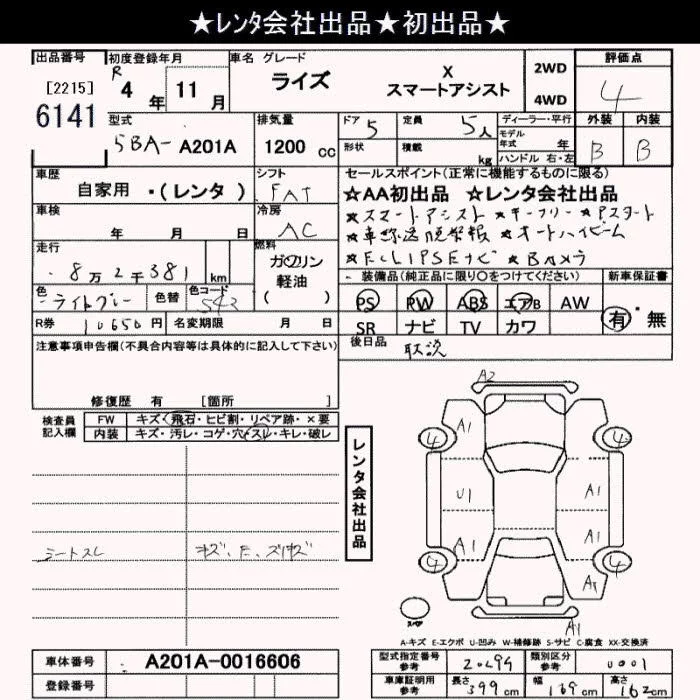 ★レンタ会社出品★初出品★
出品番号 初度登録年月 車名 グレード 評価点
[2215] R 4年 11月 ライズ X スマートアシスト 2WD 4WD 4
6141
型式 排気量 ドア 定員 ディーラー・平行 外装 内装
5BA- A201A 1200 cc 5 5人 モデル年式 年 B B
形状 積載 kg ハンドル 右・左
車歴 シフト セールスポイント(正常に機能するものに限る)
自家用 ・(レンタ) FAT ★AA初出品 ☆レンタ会社出品
車検 冷房 ★スマートアシスト ★キーフリー ★Pスタート
年 月 日 AC ★車線逸脱警報 ★オートハイビーム
走行 燃料 ★ECLIPSEナビ ★Bカメラ
8万2千381 km ガソリン 軽油 ( )
装備品(純正品に限り○をつけてください) 新車保証書
色 色替 色コード PS PW ABS エアB AW 有・無
ライトグレー SR ナビ TV カワ
R券 10650円 名変期限 月 日 後日品 取説
注意事項申告欄(不具合内容等は具体的に記入して下さい)
修復歴 有 [箇所 ]
検査員記入欄 FW キズ・飛石・ヒビ割・リペア跡・×要
内装 キズ・汚レ・コゲ・穴・スレ・キレ・破レ
レンタ会社出品
シートスレ
A2
A1
4 4
U1 A1
A1 A1
4 4
A1
スペア
A-キズ E-エクボ U-凹み W-補修跡 S-サビ C-腐食 XX-交換済
車体番号 A201A-0016606
登録番号
型式指定番号 参考 20694 類別区分 参考 0001
車庫証明用 参考 長さ 399cm 幅 169cm 高さ 162cm